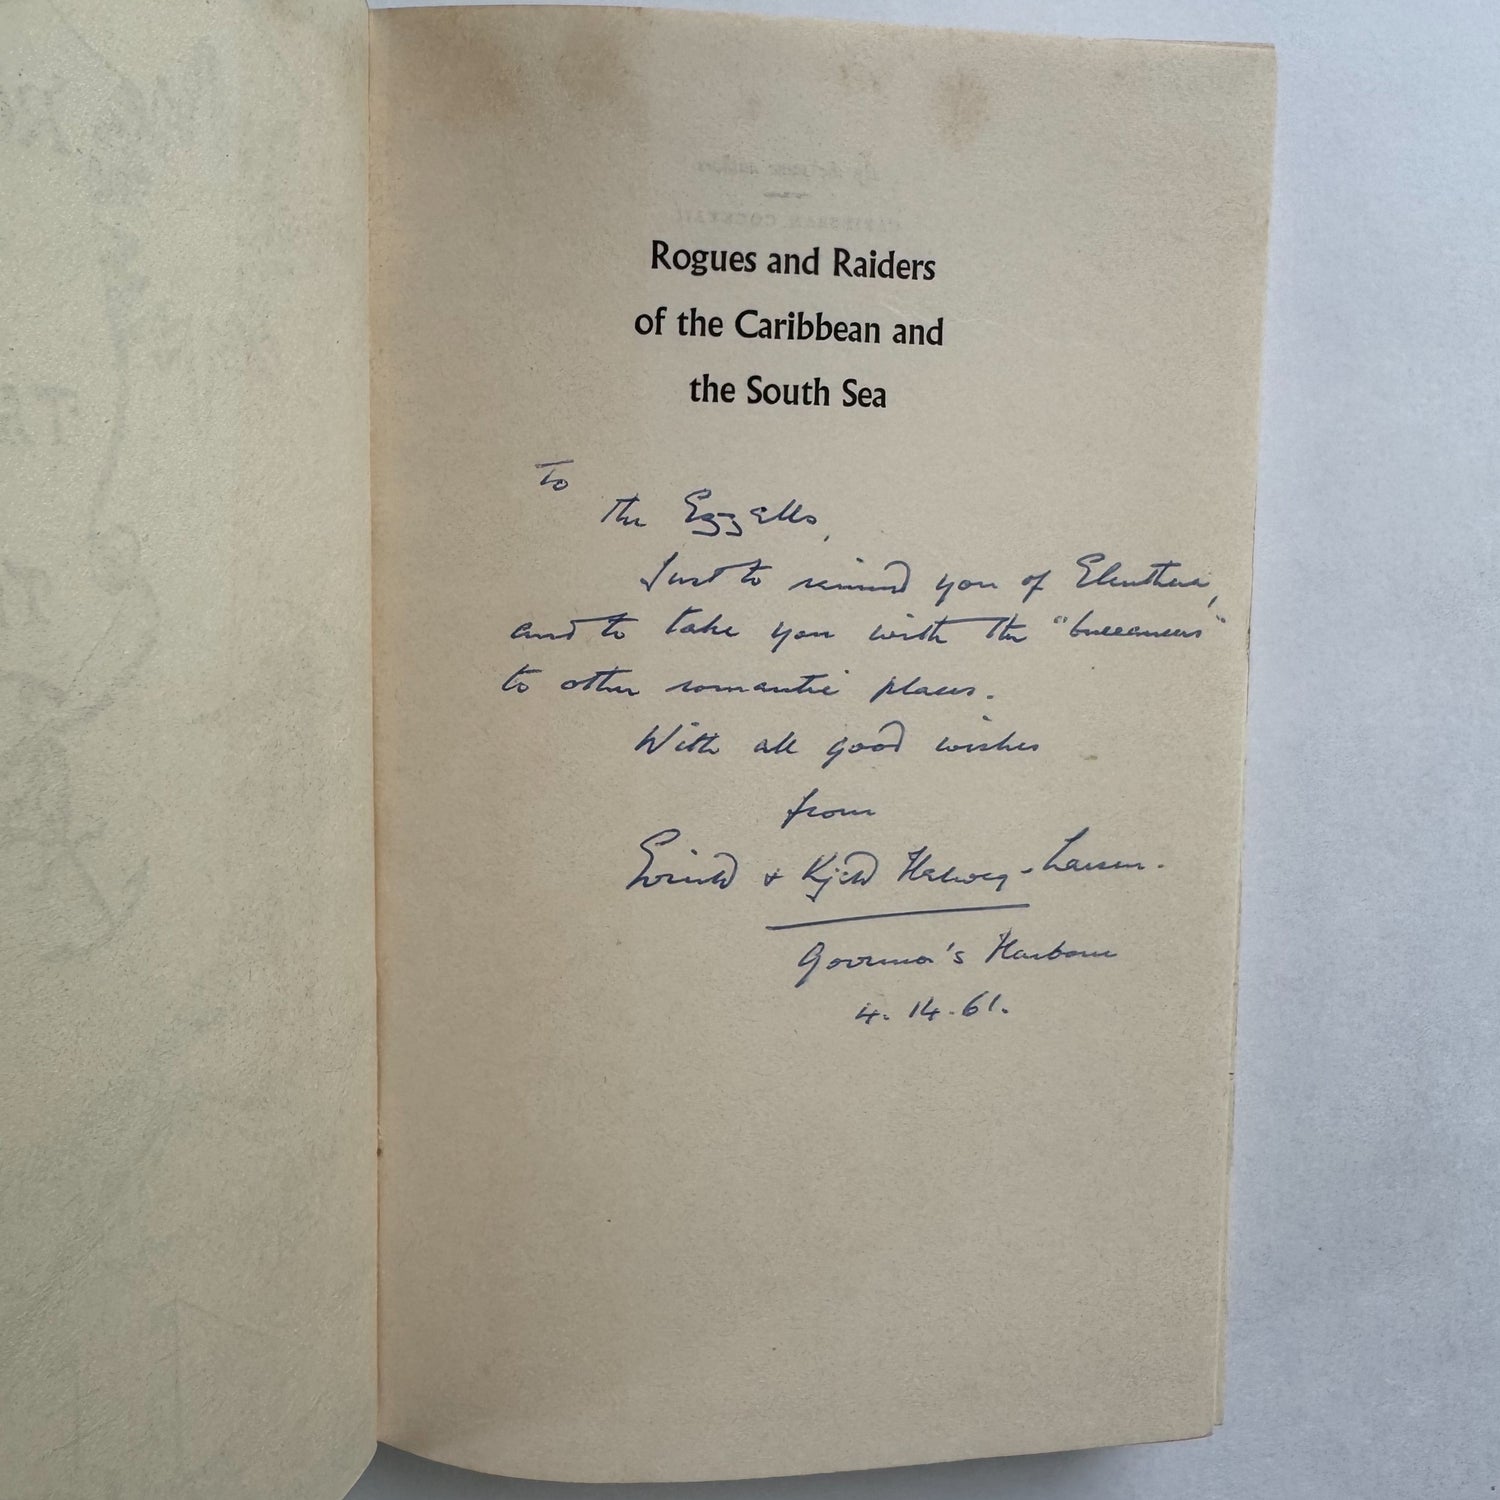 Rogues and Raiders
of the Caribbean and
the South Sea
To
the Eggells,
Just to remind you of Eleuthera,
and to take you with the "buccaneers"
to other romantic places.
With all good wishes
from
& Kjeld Helweg-Larsen.
Governor's Harbour
4.14.61.